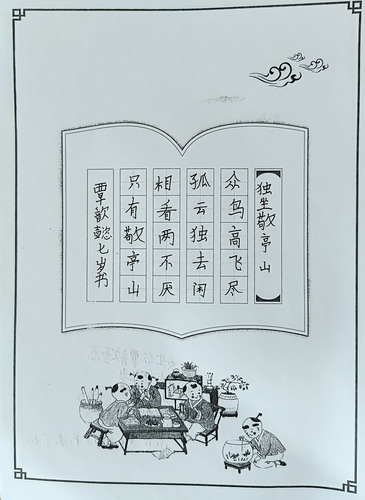 独坐敬亭山
众鸟高飞尽
孤云独去闲
相看两不厌
只有敬亭山
覃歆懿七岁书